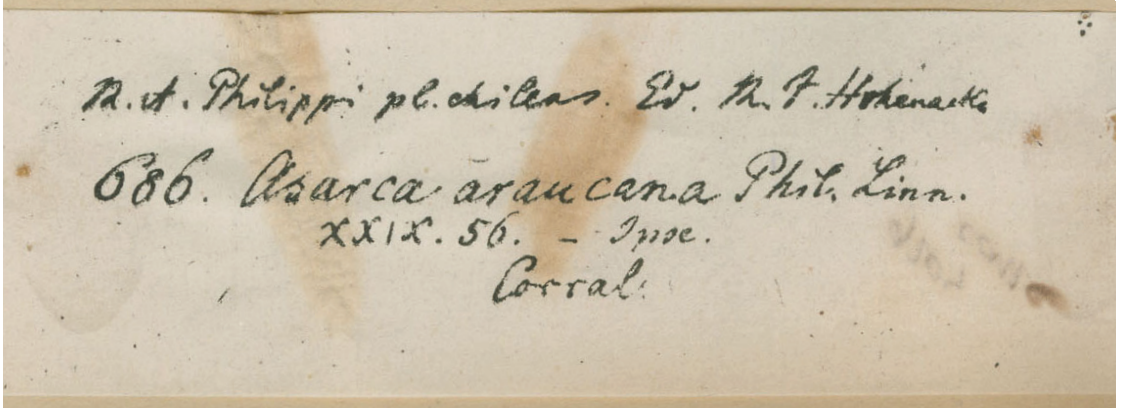 R. A. Philippi pl. chilens. Ed. R. F. Hohenack.
686. Asarca araucana Phil. Linn.
XXIX. 56. – Ipse.
Corral.